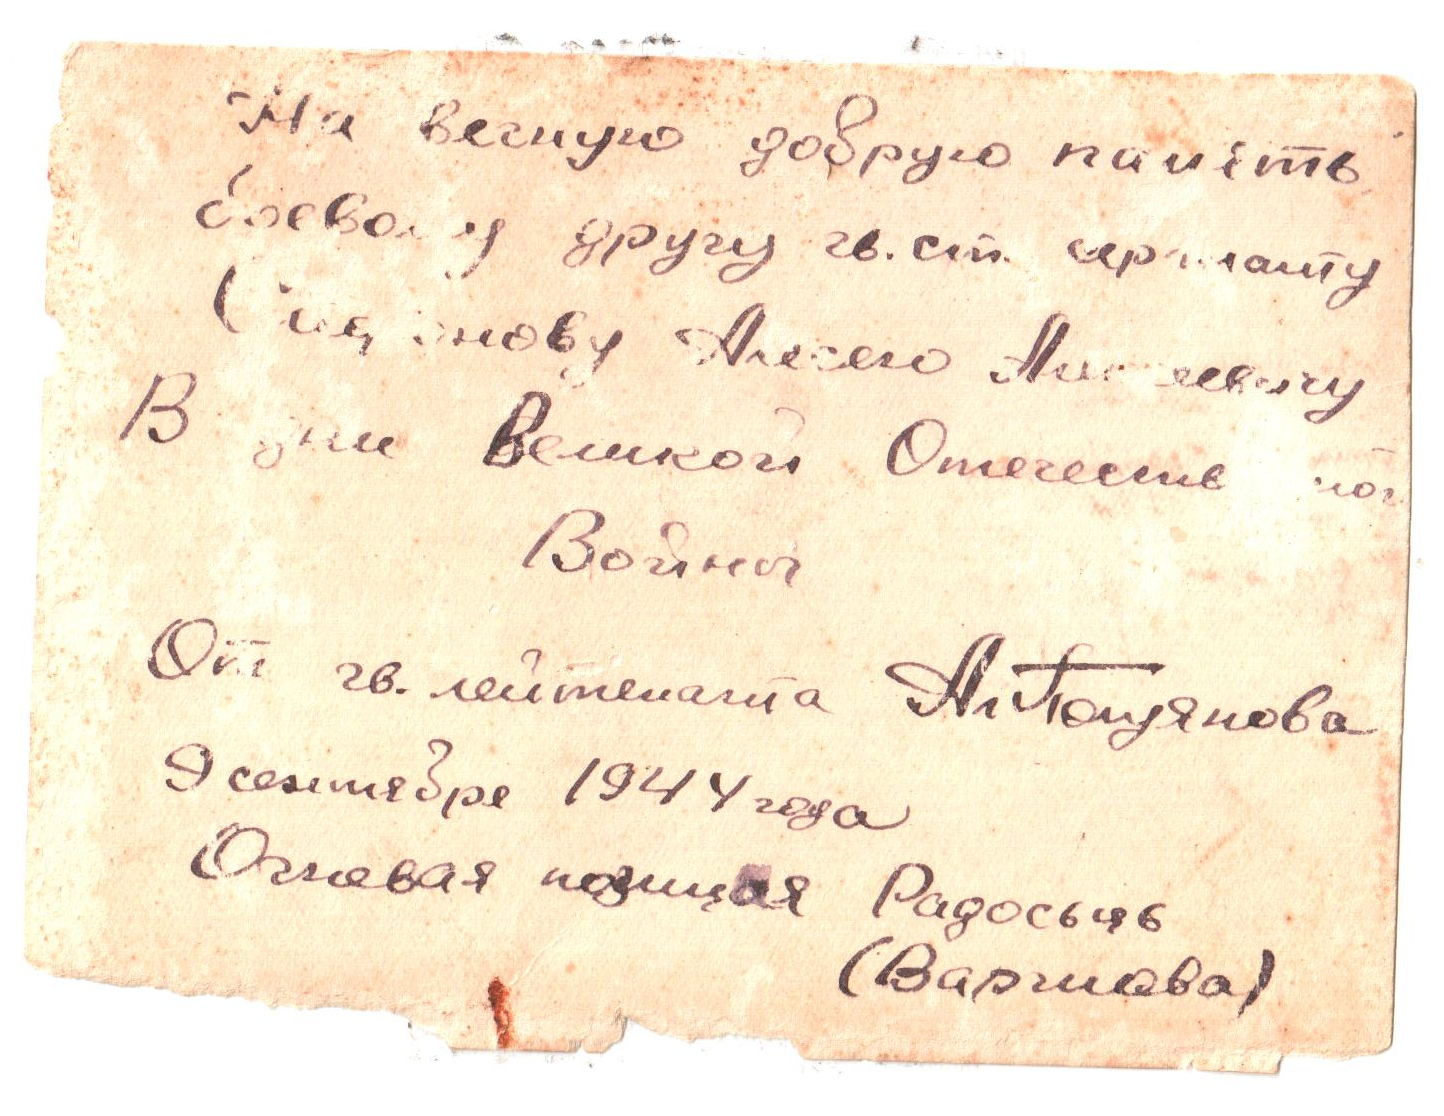 На вечную добрую память
боевому другу гв. ст. сержанту
Алексею Алексеевичу
В дни Великой Отечественной
Войны
От гв. лейтенанта
9 сентября 1944 года
Огневая позиция Радосьць
(Варшава)